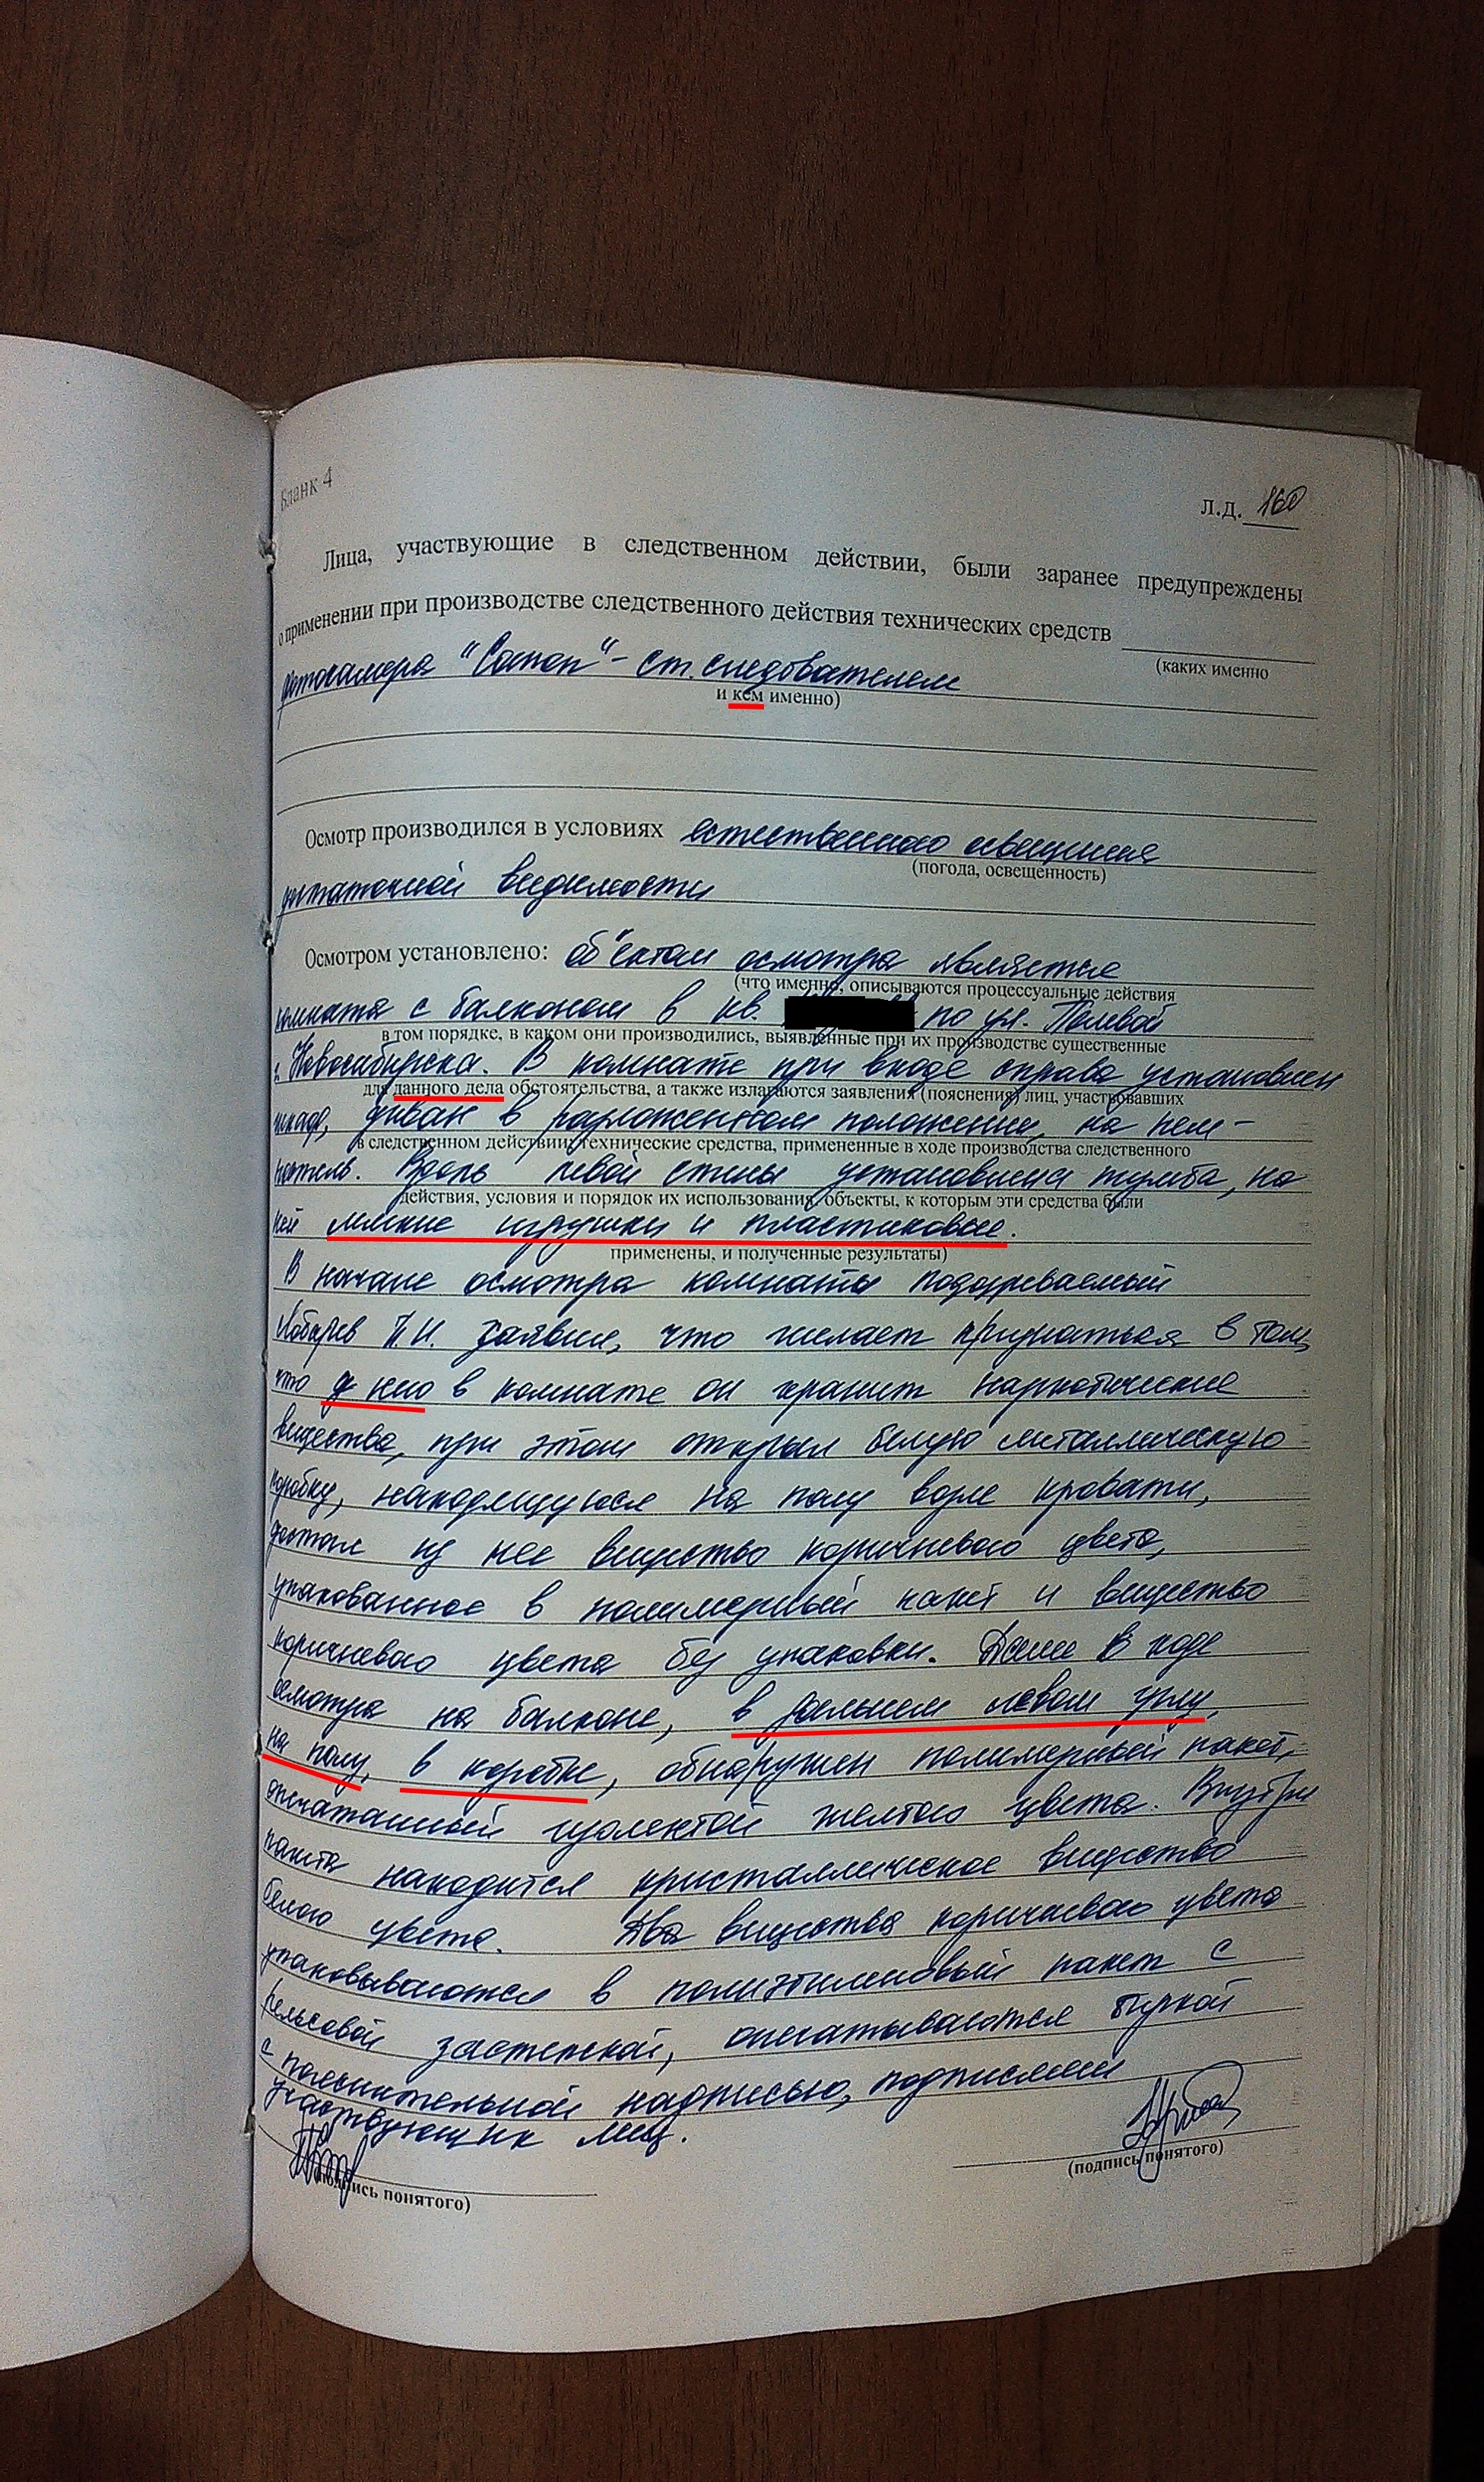 Бланк 4
Л.Д. 160
Лица, участвующие в следственном действии, были заранее предупреждены
о применении при производстве следственного действия технических средств
(каких именно
фотокамера "Canon" - ст. следователем
и кем именно)
Осмотр производился в условиях естественного освещения
(погода, освещённость)
достаточной видимости
Осмотром установлено: объектом осмотра является
(что именно, описываются процессуальные действия
комната с балконом в кв. по ул. Полевой
в том порядке, в каком они производились, выявленные при их производстве существенные
г. Новосибирска. В комнате при входе справа установлен
для данного дела обстоятельства, а также излагаются заявления (пояснения) лиц, участвовавших
шкаф, диван в разложенном положении, на нем -
в следственном действии; технические средства, примененные в ходе производства следственного
постель. Вдоль левой стены установлена тумба, на
действия, условия и порядок их использования, объекты, к которым эти средства были
ней мягкие игрушки и пластиковые.
применены, и полученные результаты)
В начале осмотра комнаты подозреваемый
Лобарев П.И. заявил, что желает признаться в том,
что у него в комнате он хранит наркотические
вещества, при этом открыл белую металлическую
коробку, находящуюся на полу возле кровати,
достал из нее вещество коричневого цвета,
упакованное в полимерный пакет и вещество
коричневого цвета без упаковки. Далее в ходе
осмотра на балконе, в дальнем левом углу,
на полу, в коробке, обнаружен полимерный пакет,
опечатанный изолентой желтого цвета. Внутри
пакета находится кристаллическое вещество
белого цвета. Два вещества коричневого цвета
упаковываются в полиэтиленовый пакет с
рельсовой застежкой, опечатываются биркой
с пояснительной надписью, подписями
участвующих лиц.
(подпись понятого)
(подпись понятого)